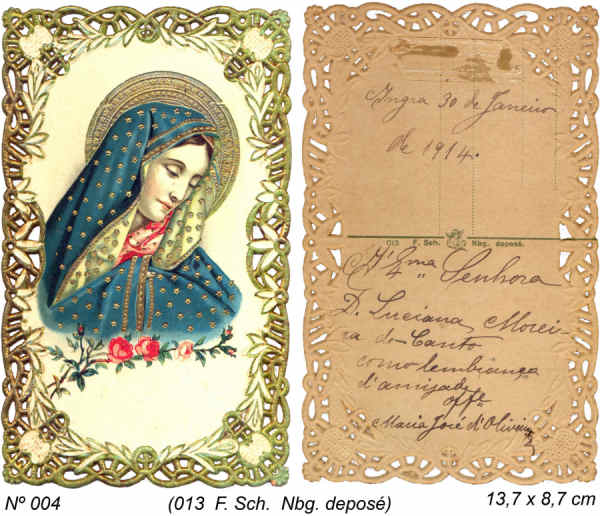 Angra 30 de Janeiro
de 1914.
013 F. Sch. Nbg. deposé.
Senhora
D. Luciana Morei-
ra do Canto
como lembrança
d'amizade
offe
Maria José d'Oliveira
Nº 004
(013 F. Sch. Nbg. deposé)
13,7 x 8,7 cm